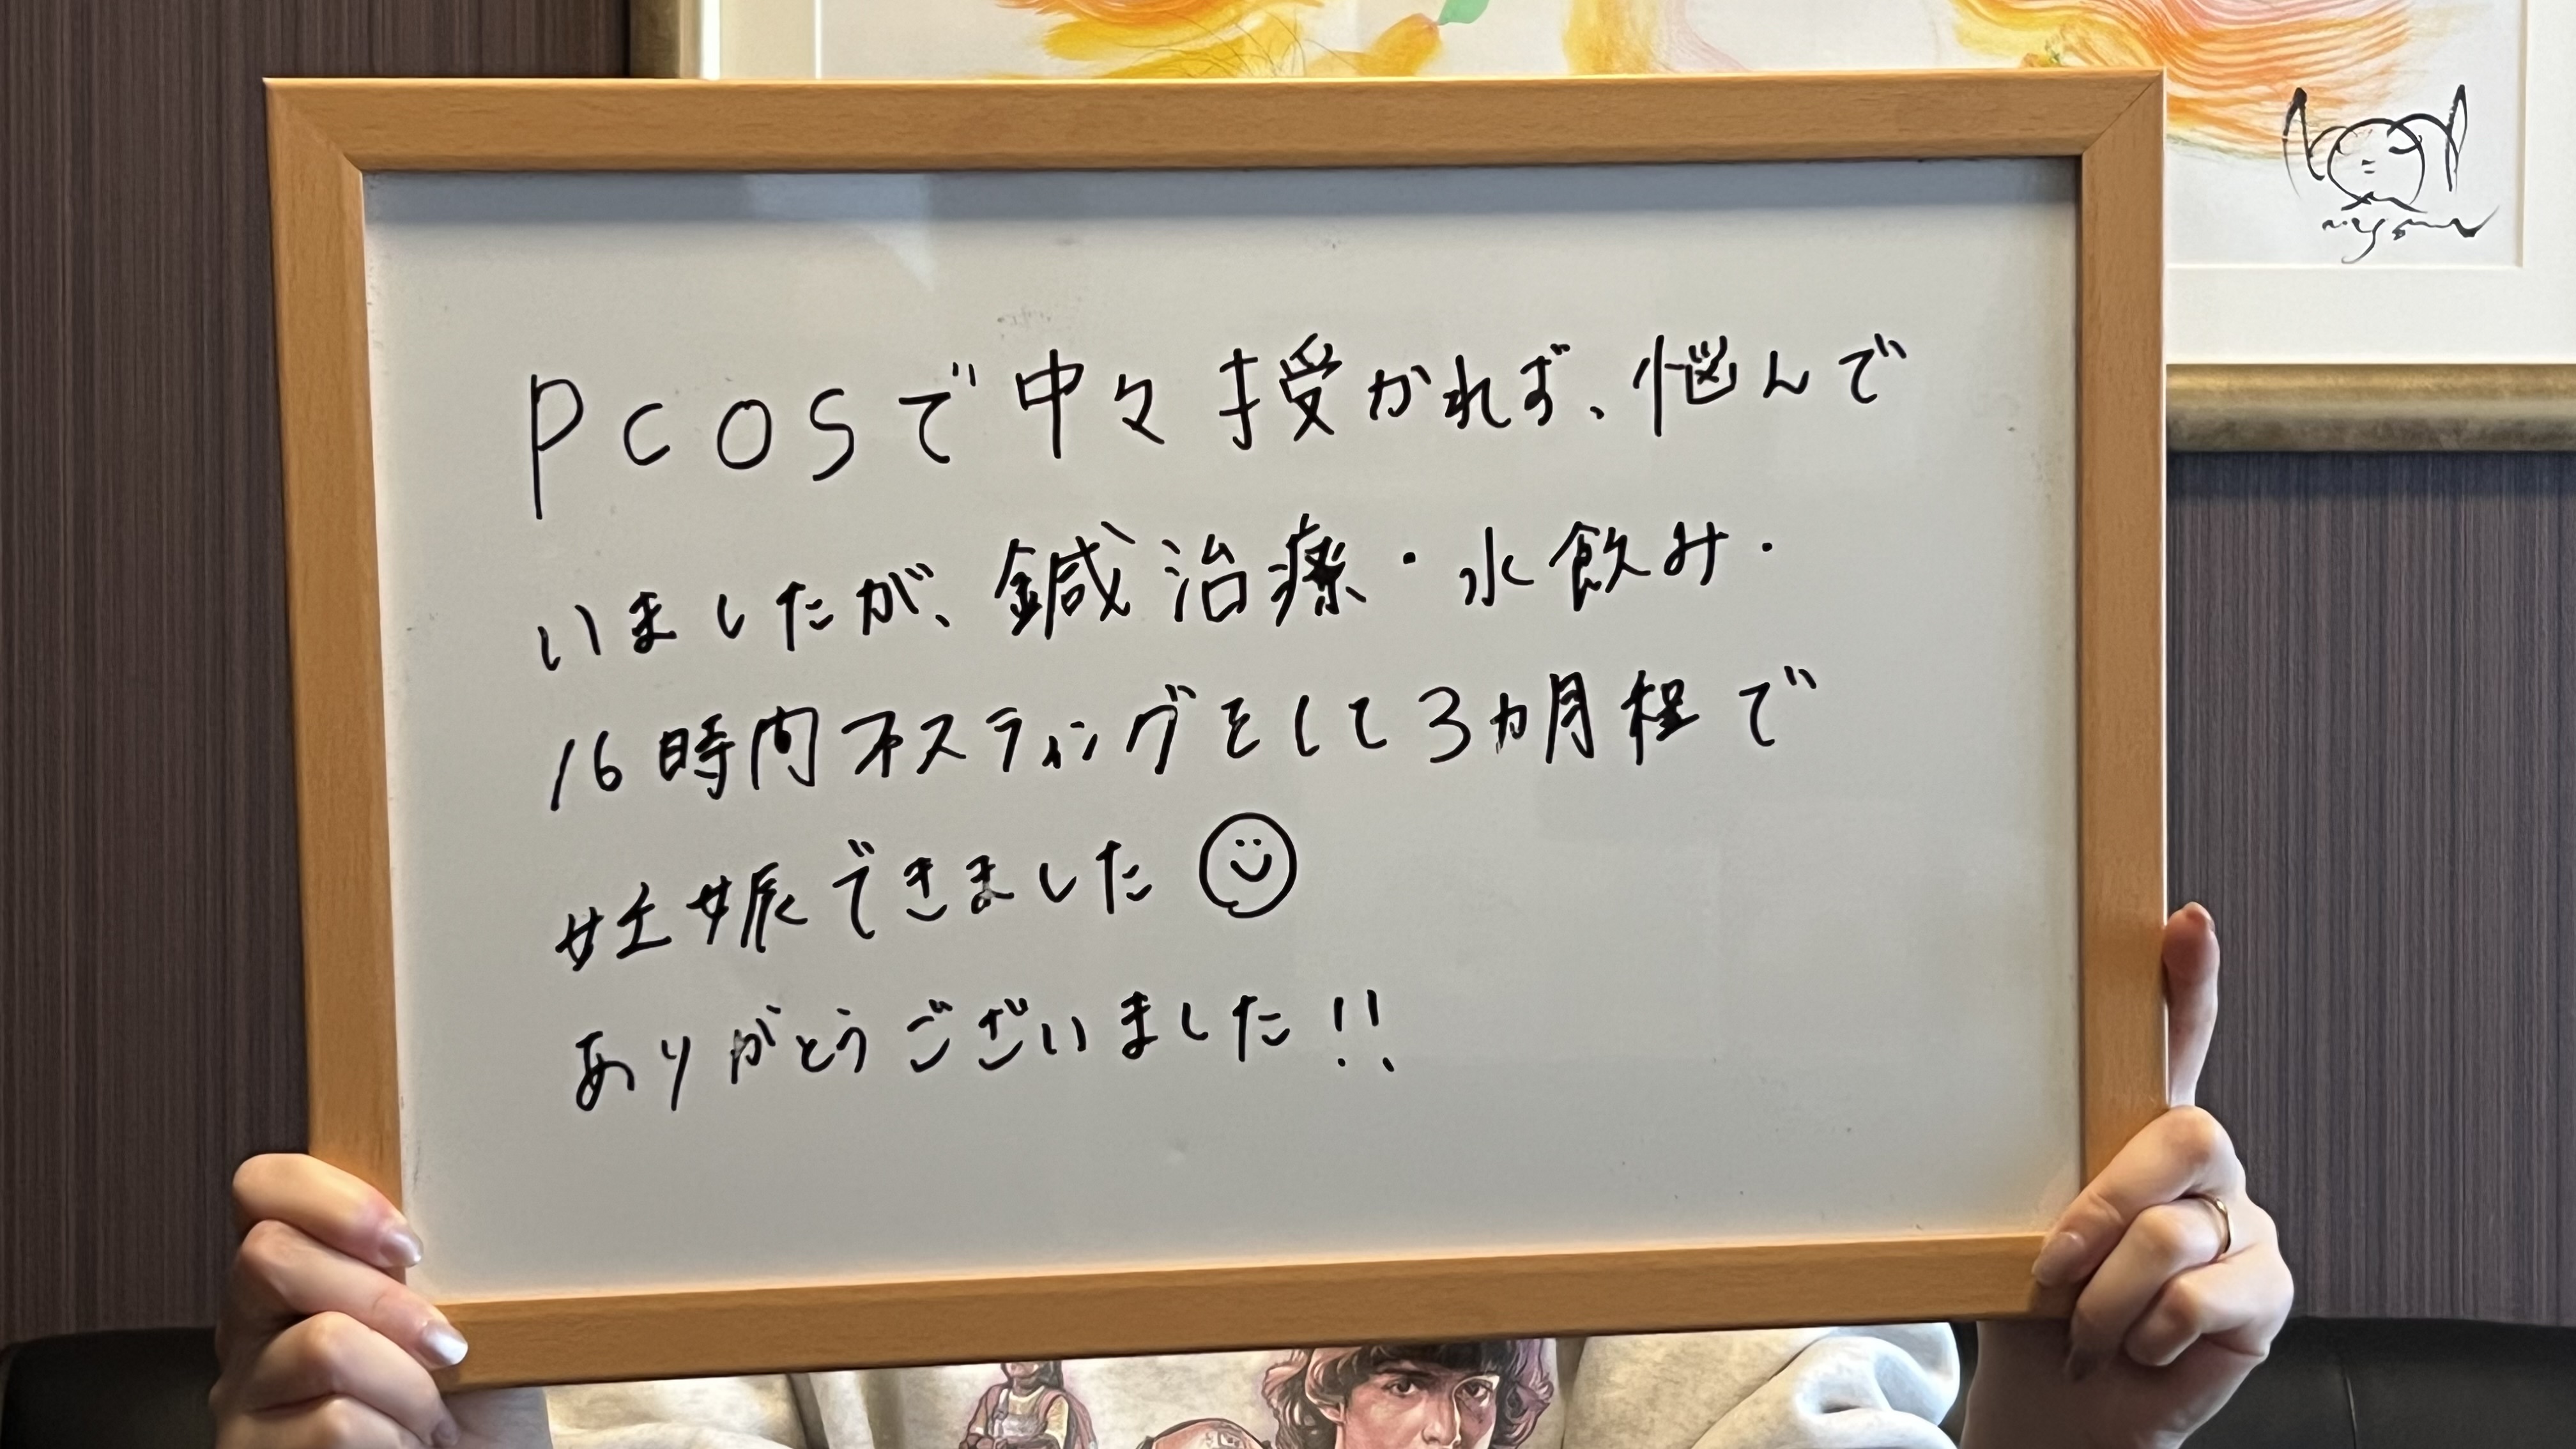 PCOSで中々授かれず、悩んで
いましたが、鍼治療・水飲み・
16時間ファスティングをして3ヵ月程で
妊娠できました
ありがとうございました!!